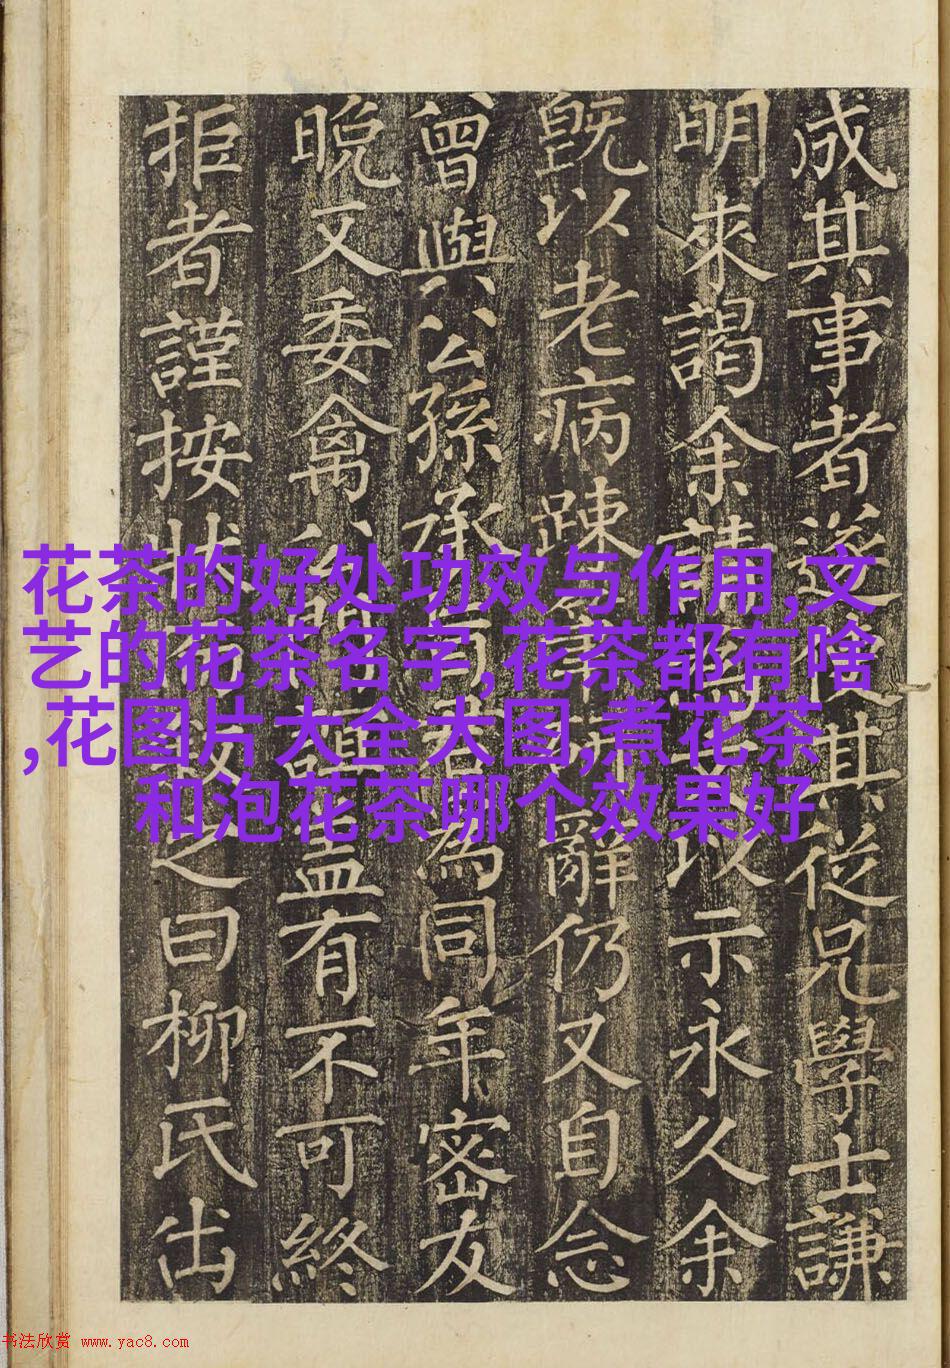 成其事者遂其從兄學士謙
明來謁余請以示永久余
旣以老病踈辭仍又自念
曾與公孫承為同年密友
晚又委禽公有不可終
拒者謹按狀之曰柳氏出
花茶的好处功效与作用,文
艺的花茶名字,花茶都有啥
,花图片大全大图,煮花茶
和泡花茶哪个效果好
书法欣赏 www.yac8.com